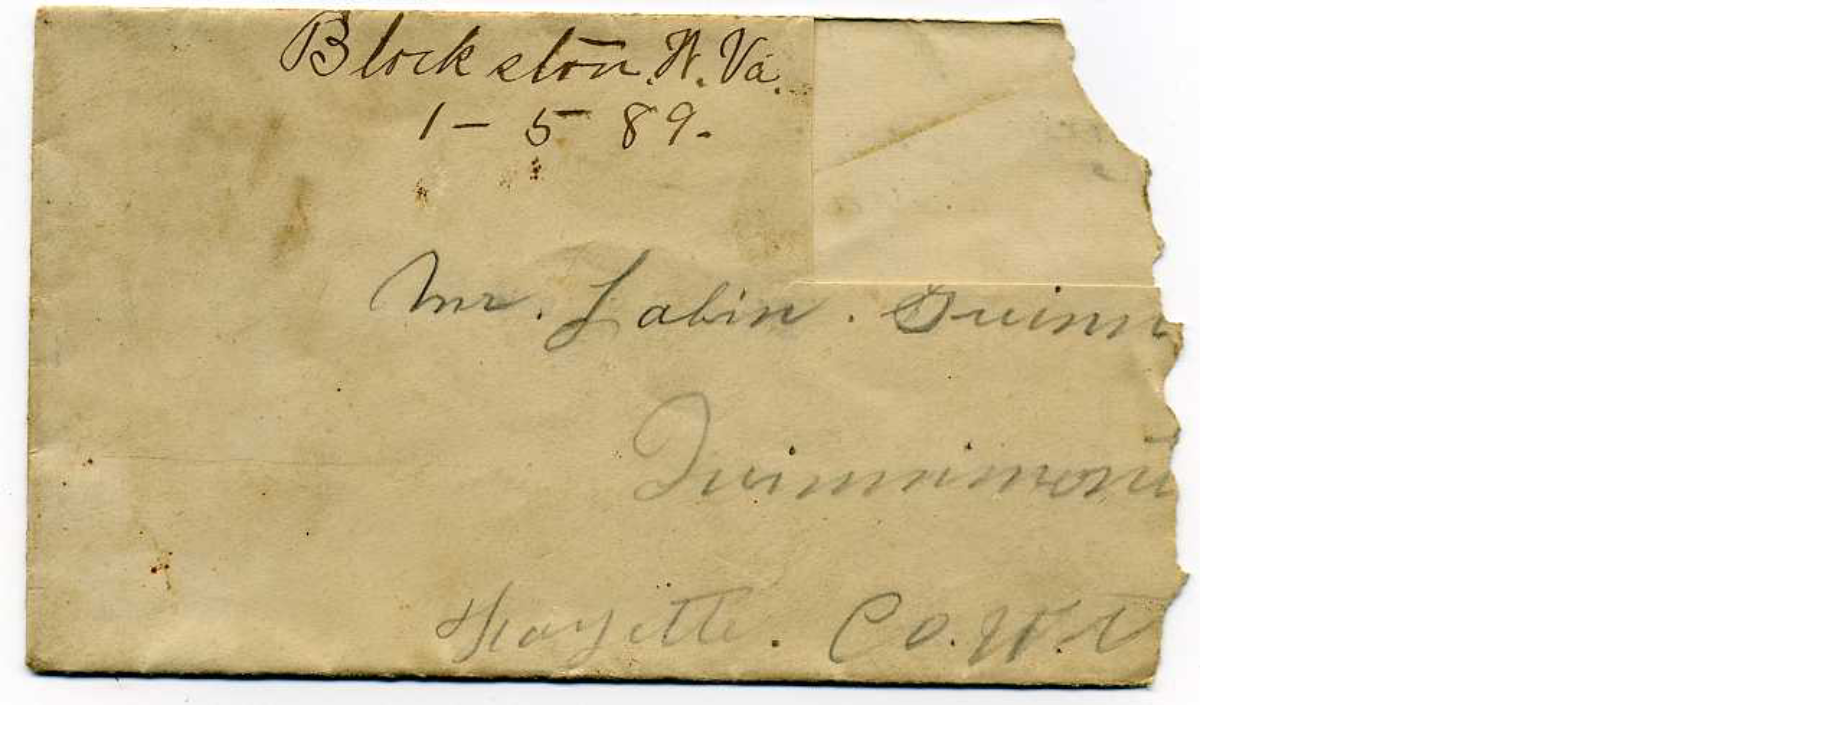 Blockston. W. Va.
1 - 5 89.
Mr. Labin. Guinn
Quinnimont
Fayette. Co. W. V